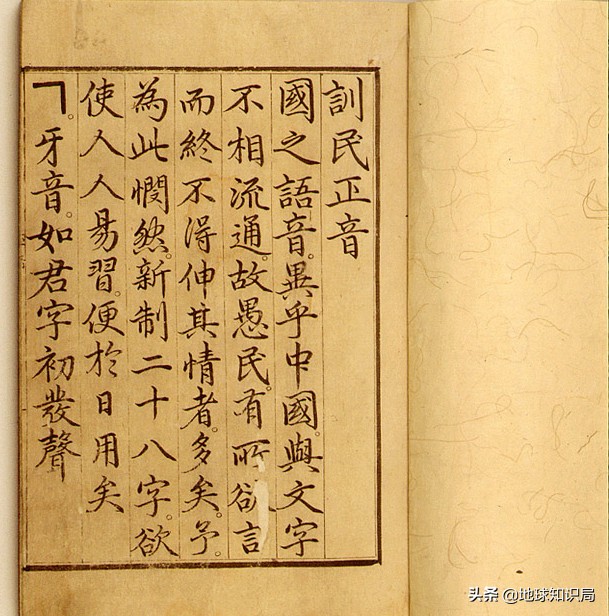 訓民正音
國之語音。異乎中國。與文字
不相流通故愚民。有所欲言
而終不得伸其情者。多矣。予。
為此憫然。新制二十八字。欲
使人人易習。便於日用矣
ㄱ。牙音。如君字初發聲
头条 @地球知识局